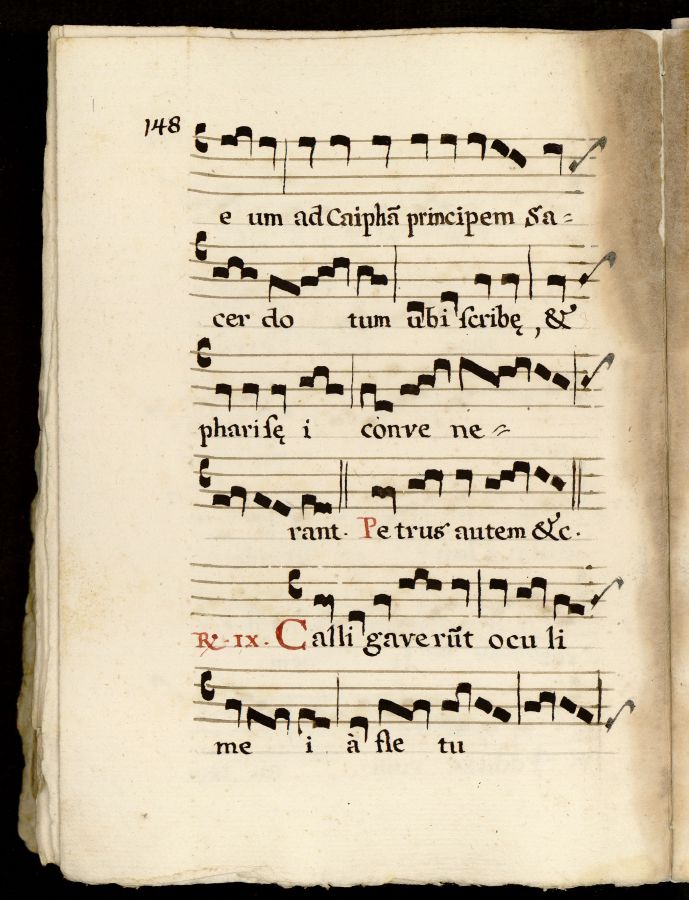 148
e um ad Caiphã principem Sa=
cer do tum ubi ſcribę, &
phariſę i conve ne=
rant. Petrus autem &c.
℟. IX. Calli gaverũt ocu li
me i à fle tu